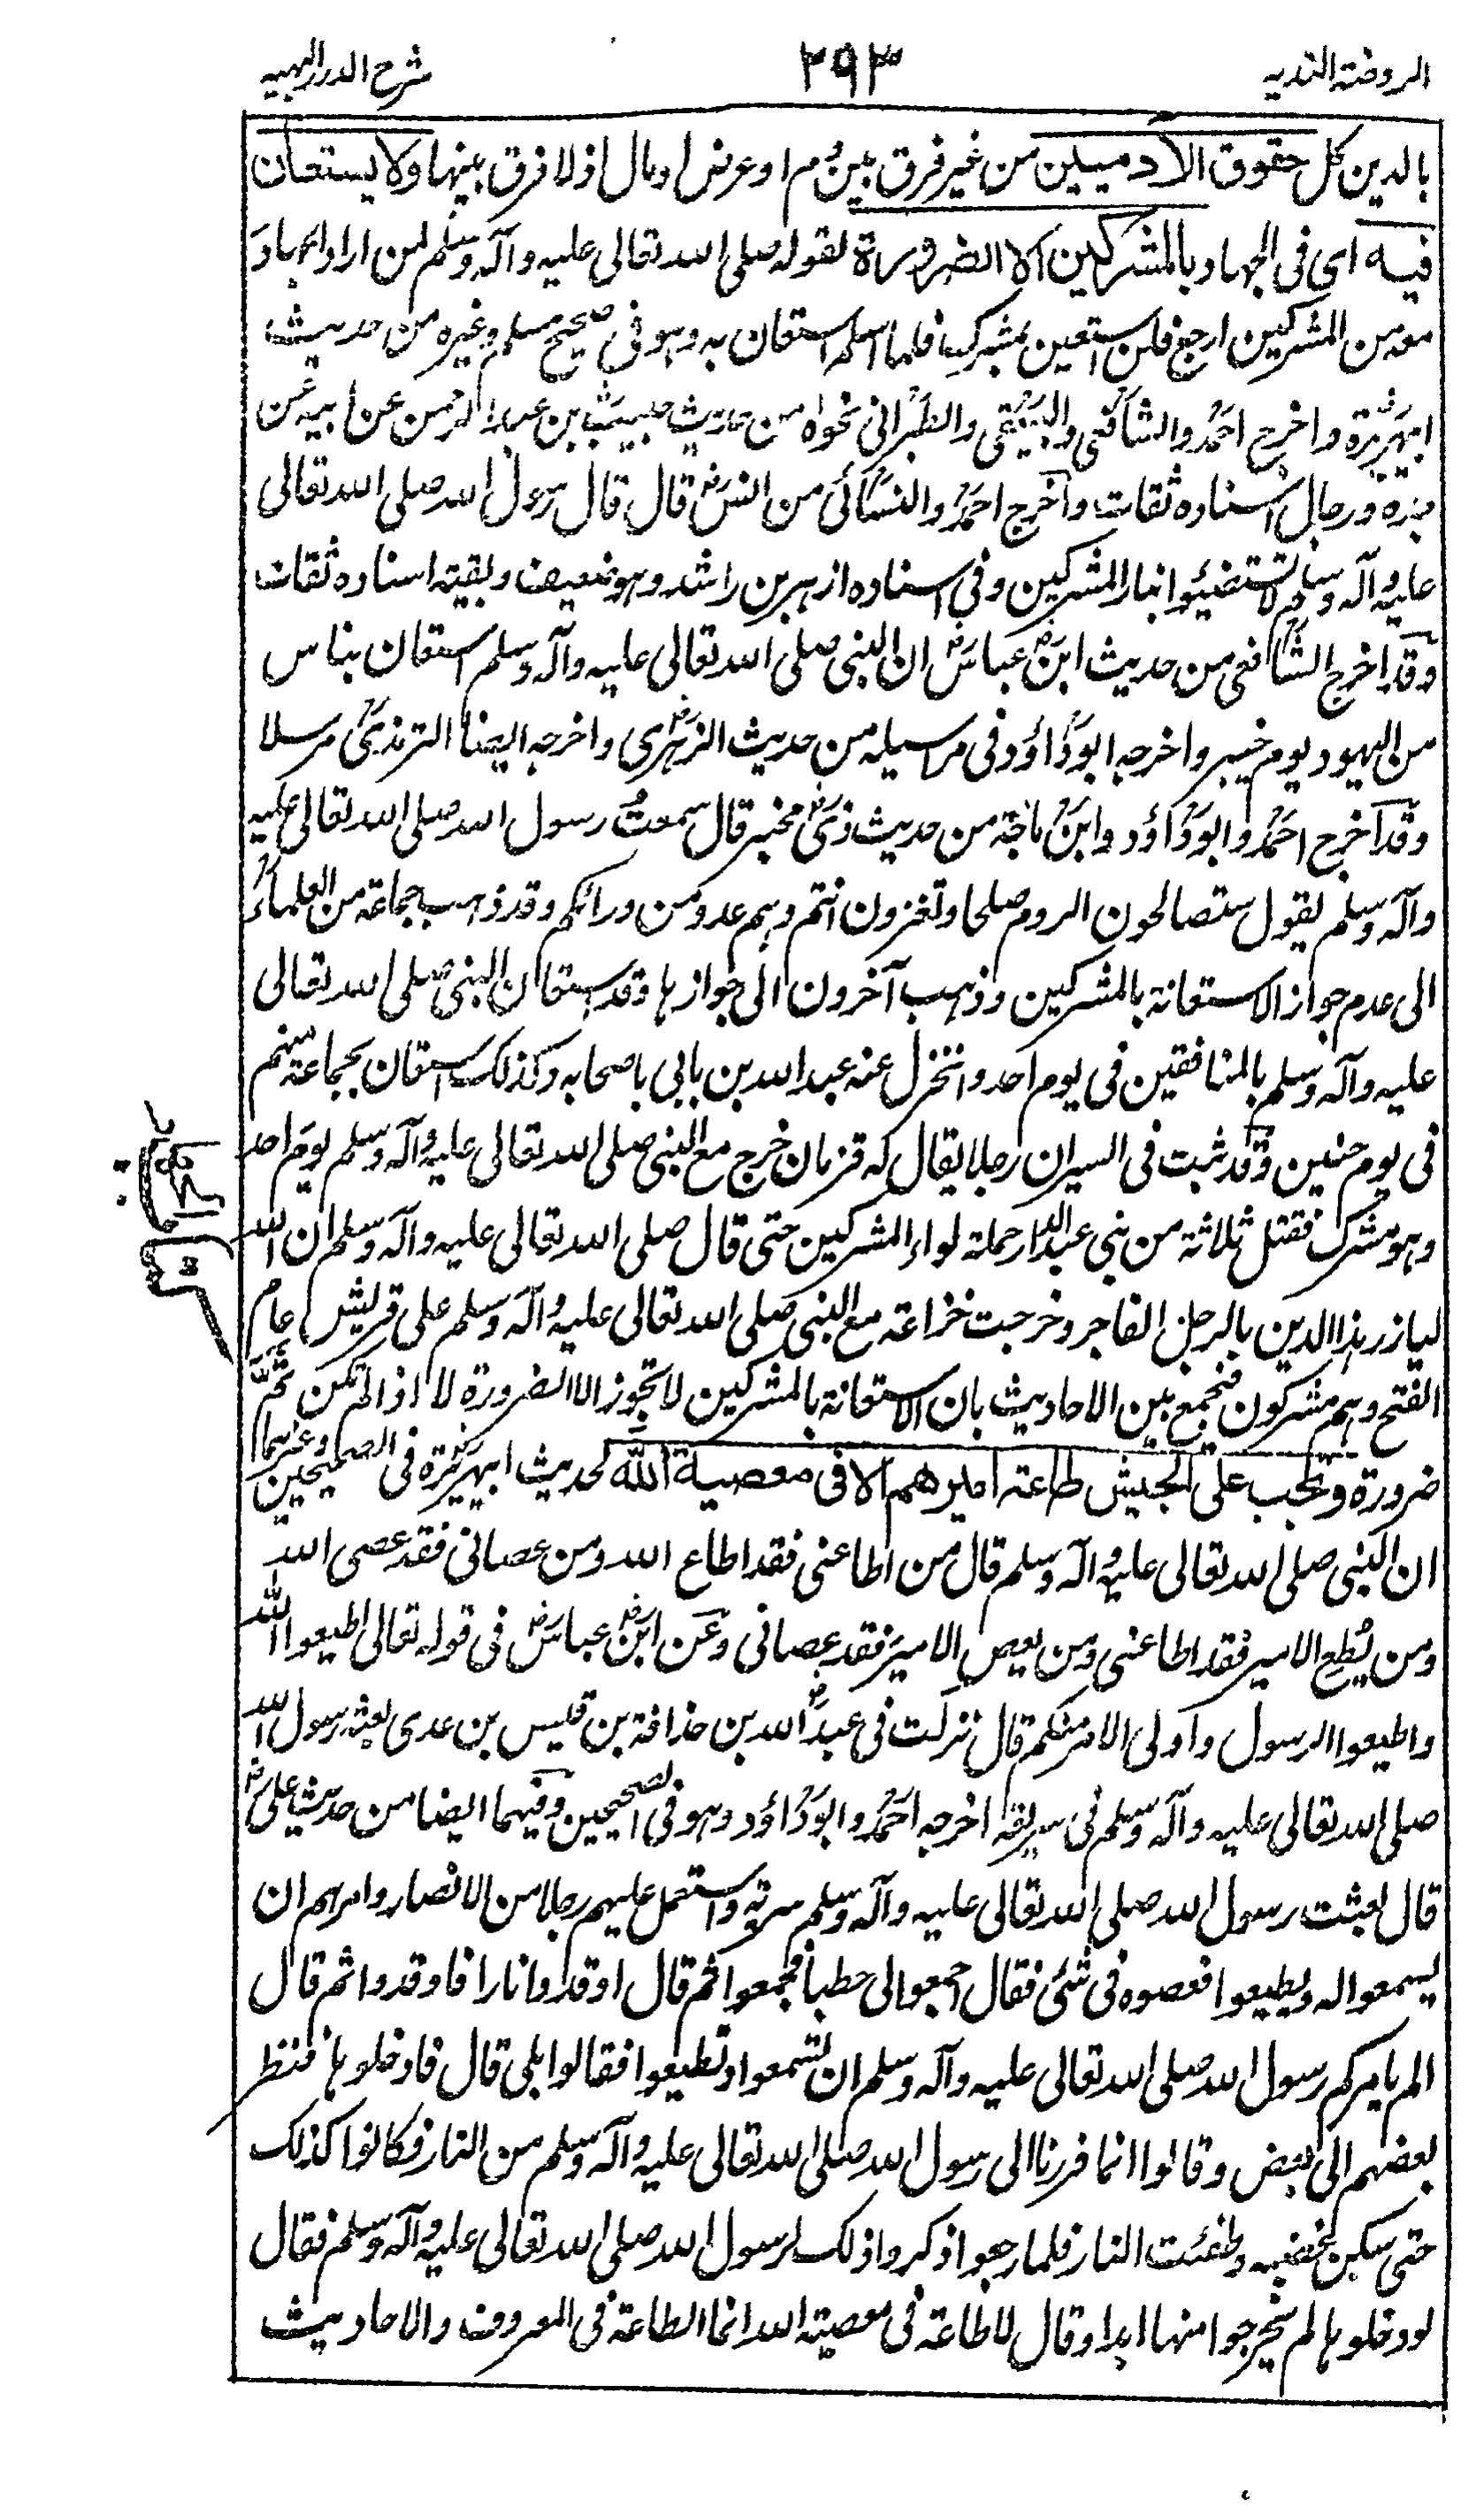 الروضة الندیه ۲۹۳ شرح الدرر البهیه
بالدین کل حقوق الآدمیین من غیر فرق بین دم او عرض او مال اذ لا فرق بینها ولا یستعان
فیه ای فی الجهاد بالمشرکین الا لضرورة لقوله صلی الله تعالی علیه وآله وسلم لمن اراد الجهاد
معه من المشرکین ارجع فلن استعین بمشرک فلما اسلم استعان به وهو فی صحیح مسلم وغیره من حدیث
ابی هریرة واخرج احمد والشافعی والبیهقی والطبرانی نحوه من حدیث خبیب بن عبد الرحمن عن ابیه عن
جده ورجال اسناده ثقات واخرج احمد والنسائی من انس قال قال رسول الله صلی الله تعالی
علیه وآله وسلم لا تستضیئوا بنار المشرکین وفی اسناده ازهر بن راشد وهو ضعیف وبقیة اسناده ثقات
وقد اخرج الشافعی من حدیث ابن عباس ان النبی صلی الله تعالی علیه وآله وسلم استعان بناس
من الیهود یوم خیبر واخرجه ابو داؤد فی مراسیله من حدیث الزهری واخرجه ایضا الترمذی مرسلا
وقد اخرج احمد وابو داؤد وابن ماجة من حدیث ذی مخبر قال سمعت رسول الله صلی الله تعالی علیه
وآله وسلم یقول ستصالحون الروم صلحا وتغزون انتم وهم عدوا من ورائکم وقد ذهب جماعة من العلماء
الی عدم جواز الاستعانة بالمشرکین وذهب آخرون الی جوازها وقد استعان النبی صلی الله تعالی
علیه وآله وسلم بالمنافقین فی یوم احد وانخزل عنه عبد الله بن بابی باصحابه وکذلک استعان بجماعة منهم
فی یوم حنین وقد ثبت فی السیر ان رجلا یقال له قزمان خرج مع النبی صلی الله تعالی علیه وآله وسلم یوم احد
وهو مشرک فقتل ثلاثة من بنی عبد الدار حملة لواء المشرکین حتی قال صلی الله تعالی علیه وآله وسلم ان الله
لیازر هذا الدین بالرجل الفاجر وخرجت خزاعة مع النبی صلی الله تعالی علیه وآله وسلم علی قریش عام
الفتح وهم مشرکون فیجمع بین الاحادیث بان الاستعانة بالمشرکین لا تجوز الا لضرورة لا اذا لم تکن ثمة
ضرورة وتجب علی الجیش طاعة امیرهم الا فی معصیة الله لحدیث ابی هریرة فی الصحیحین وغیرهما
ان النبی صلی الله تعالی علیه وآله وسلم قال من اطاعنی فقد اطاع الله ومن عصانی فقد عصی الله
ومن یطع الامیر فقد اطاعنی ومن یعص الامیر فقد عصانی وعن ابن عباس فی قوله تعالی اطیعوا الله
واطیعوا الرسول واولی الامر منکم قال نزلت فی عبد الله بن حذافة بن قیس بن عدی بعثه رسول الله
صلی الله تعالی علیه وآله وسلم فی سریة اخرجه احمد وابو داؤد وهو فی الصحیحین وفیهما ایضا من حدیث علی
قال بعث رسول الله صلی الله تعالی علیه وآله وسلم سریة واستعمل علیهم رجلا من الانصار وامرهم ان
یسمعوا له ویطیعوا فعصوه فی شئ فقال اجمعوا لی حطبا فجمعوا ثم قال اوقدوا نارا فاوقدوا ثم قال
الم یامرکم رسول الله صلی الله تعالی علیه وآله وسلم ان تسمعوا وتطیعوا فقالوا بلی قال فادخلوها فنظر
بعضهم الی بعض وقالوا انما فررنا الی رسول الله صلی الله تعالی علیه وآله وسلم من النار فکانوا کذلک
حتی سکن غضبه وطفئت النار فلما رجعوا ذکروا ذلک لرسول الله صلی الله تعالی علیه وآله وسلم فقال
لو دخلوها لم یخرجوا منها ابدا وقال لا طاعة فی معصیة الله انما الطاعة فی المعروف والاحادیث